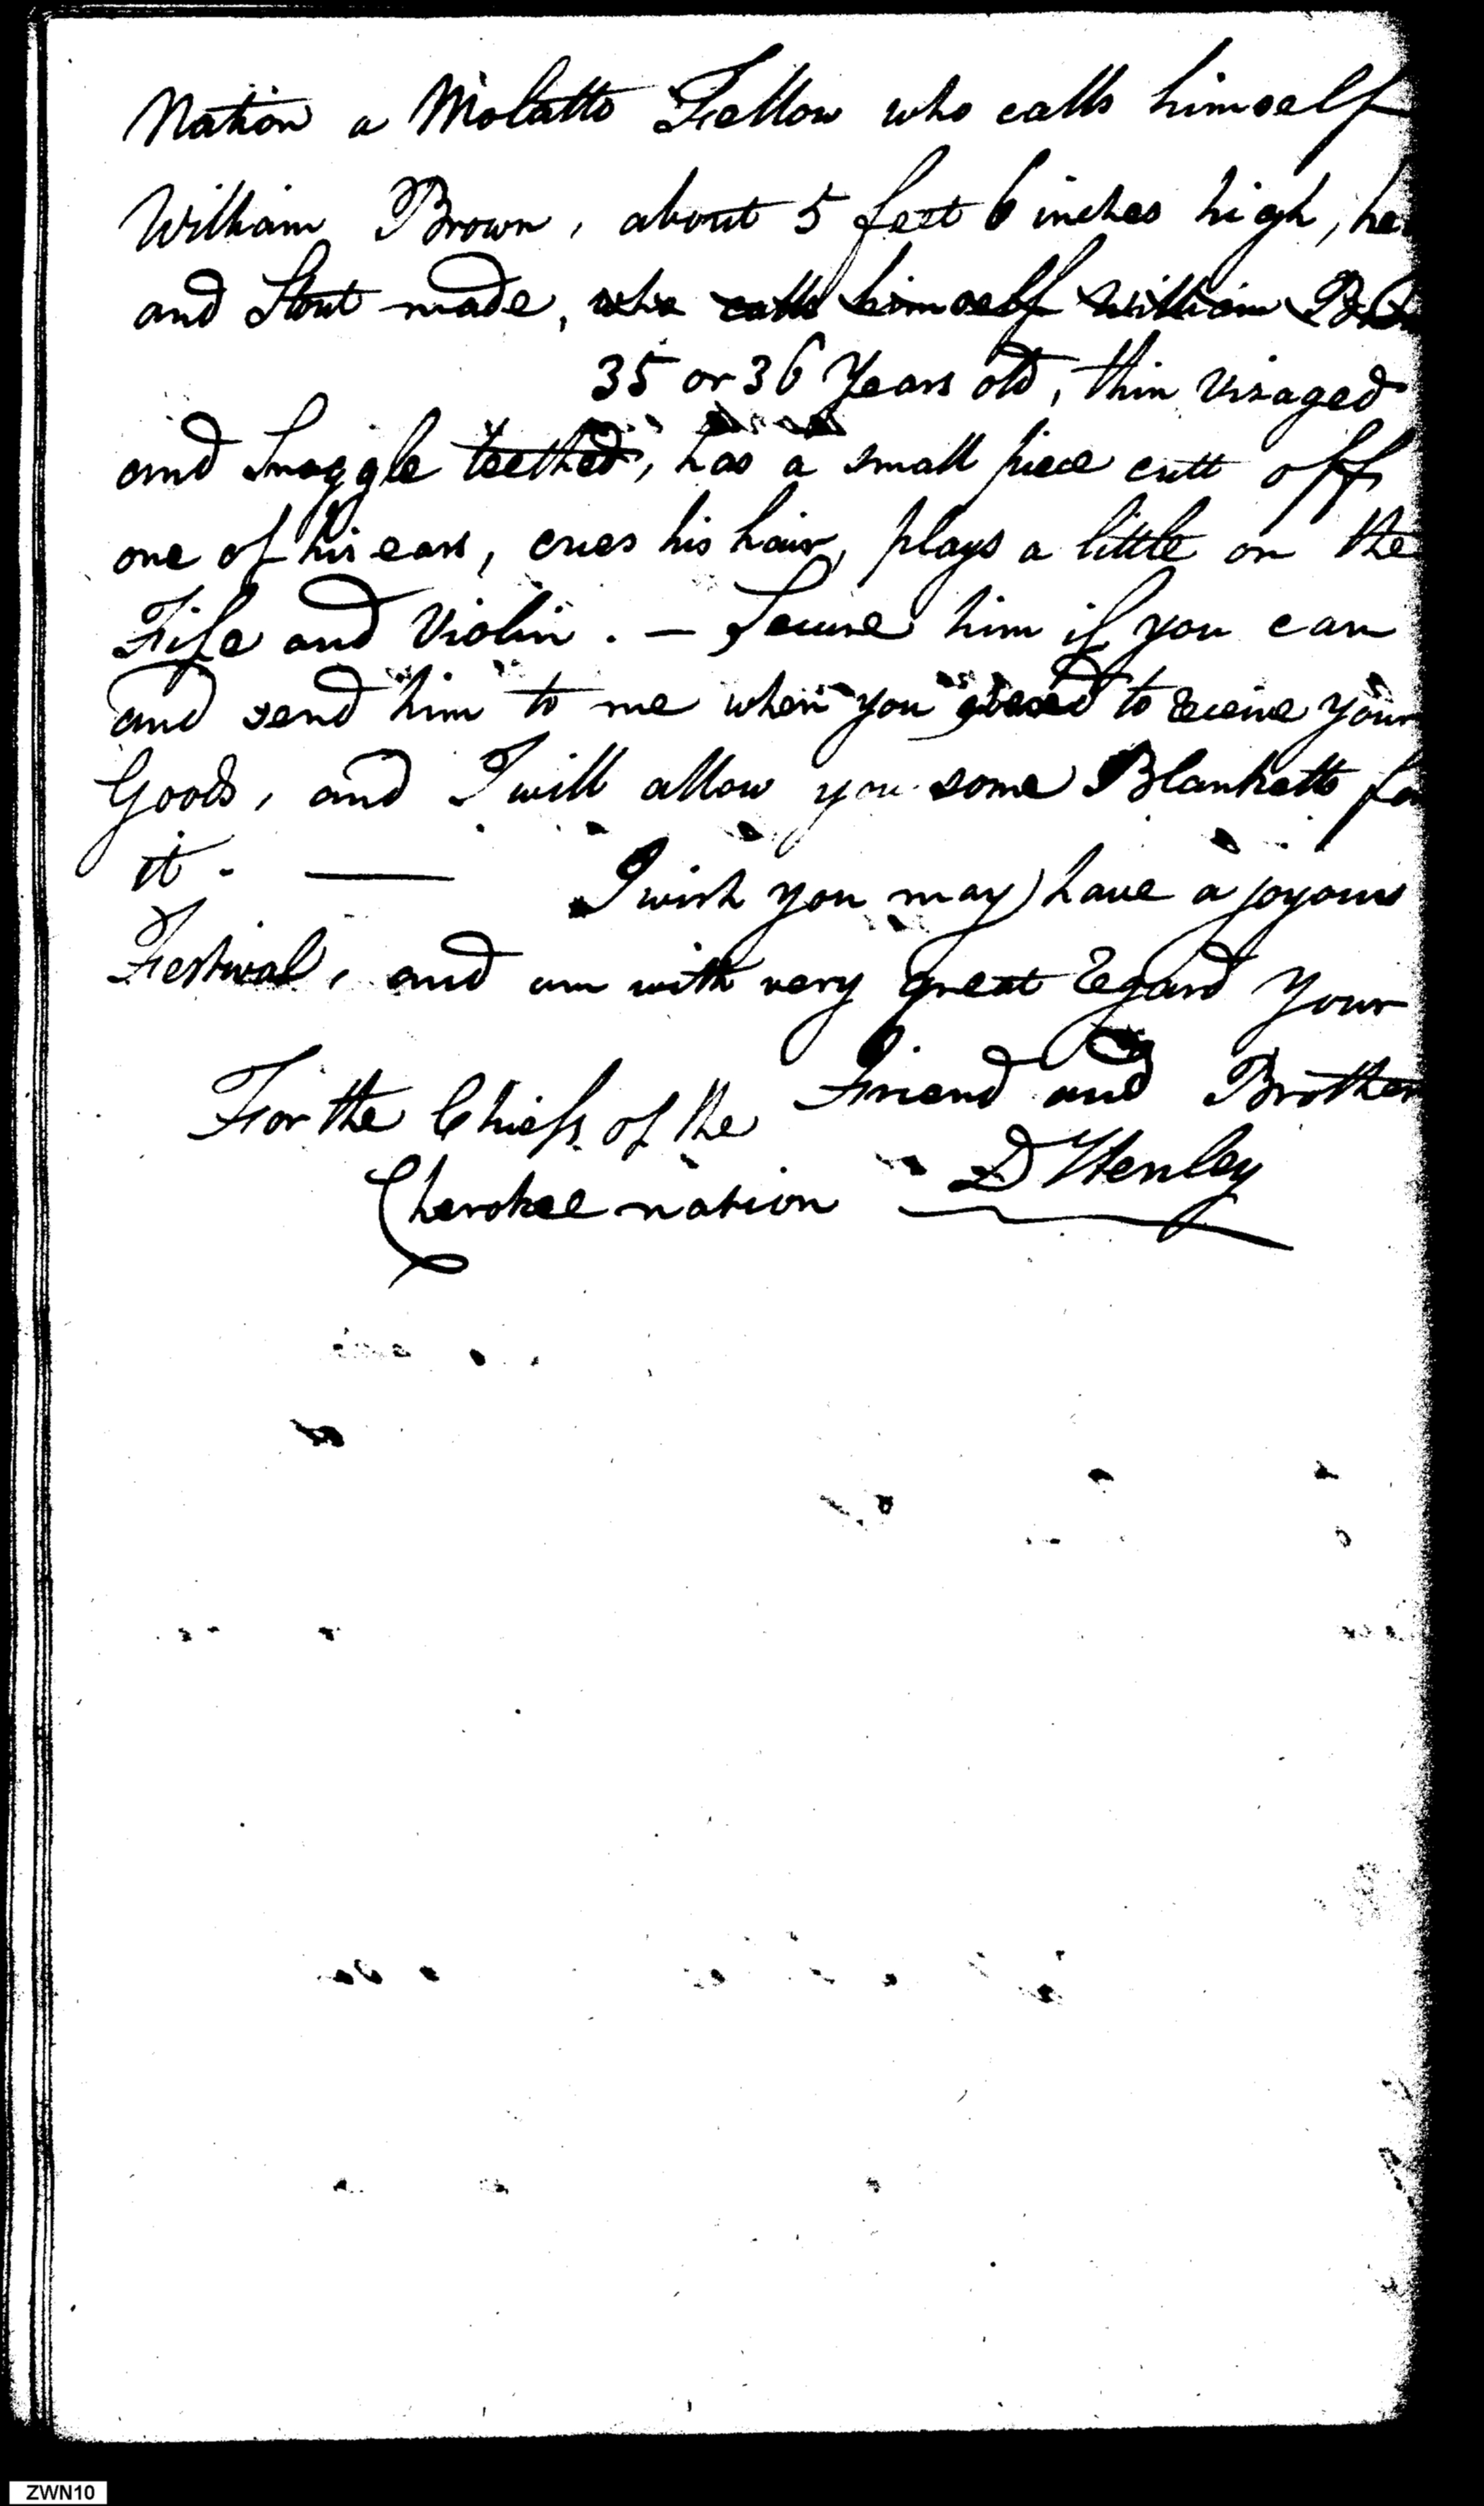 Nation a Molatto Fellow who calls himself
William Brown, about 5 feet 6 inches high, he
and Stout made, who calls himself William
35 or 36 Years old, thin visaged
and Snaggle teethed, has a small piece cutt off
one of his ears, cues his hair, plays a little on the
Fife and Violin. — Secure him if you can
and send him to me when you to receive your
Goods, and I will allow you some Blanketts fo
it. — I wish you may have a joyous
Festival, and am with very great regard your
Friend and Brother
For the Chiefs of the
D Henley
Cherokee nation
ZWN10